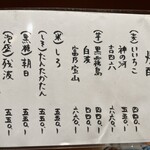 焼酎
(麦) いいちこ 四四〇
神の河 四四〇
吉四六 六六〇
(芋) 黒霧島 四四〇
白波 四四〇
富乃宝山 六六〇
(米) しろ 五五〇
(しそ) たんたかたん 五五〇
(黒糖) 朝日 五五〇
(泡盛) 残波 五五〇